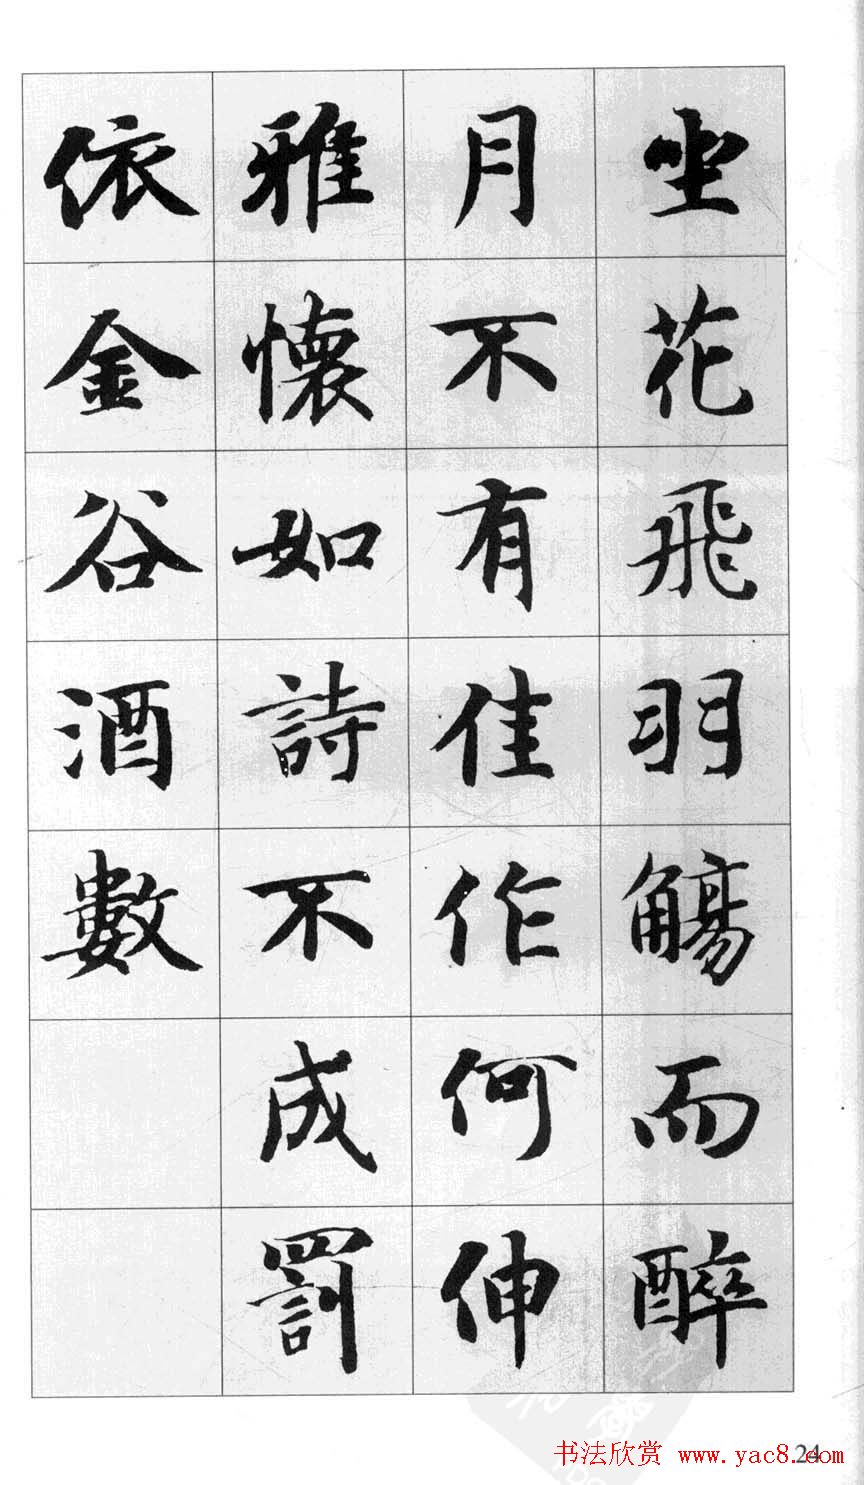 坐花飛羽觴而醉
月不有佳作何伸
雅懷如詩不成罰
依金谷酒數
书法欣赏 www.yac8.com
24